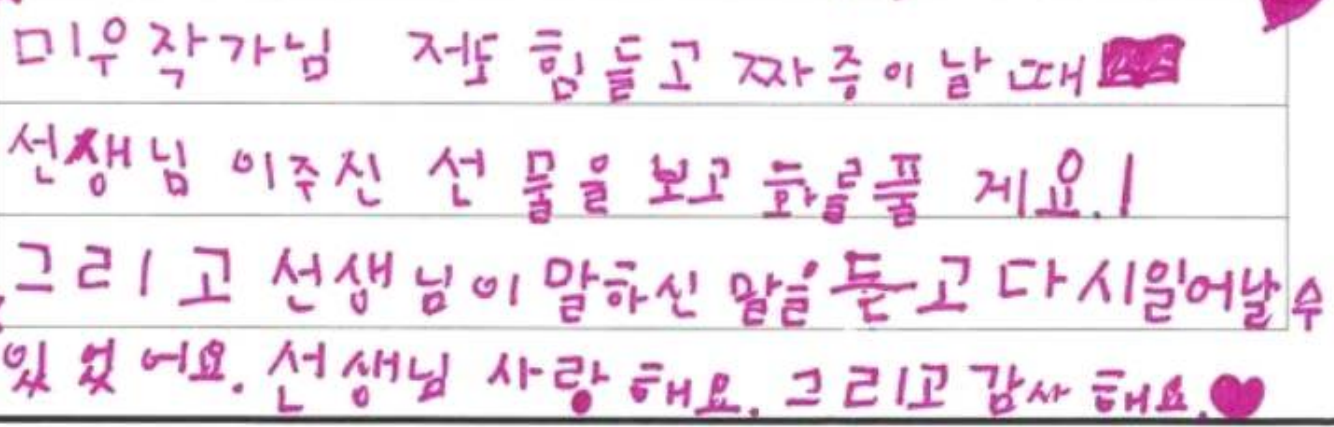 미우작가님 저도 힘들고 짜증이날때
선생님이주신 선물을 보고 화를풀게요.!
그리고 선생님이 말하신 말을 듣고 다시일어날수
있었어요. 선생님 사랑해요. 그리고 감사해요.♥